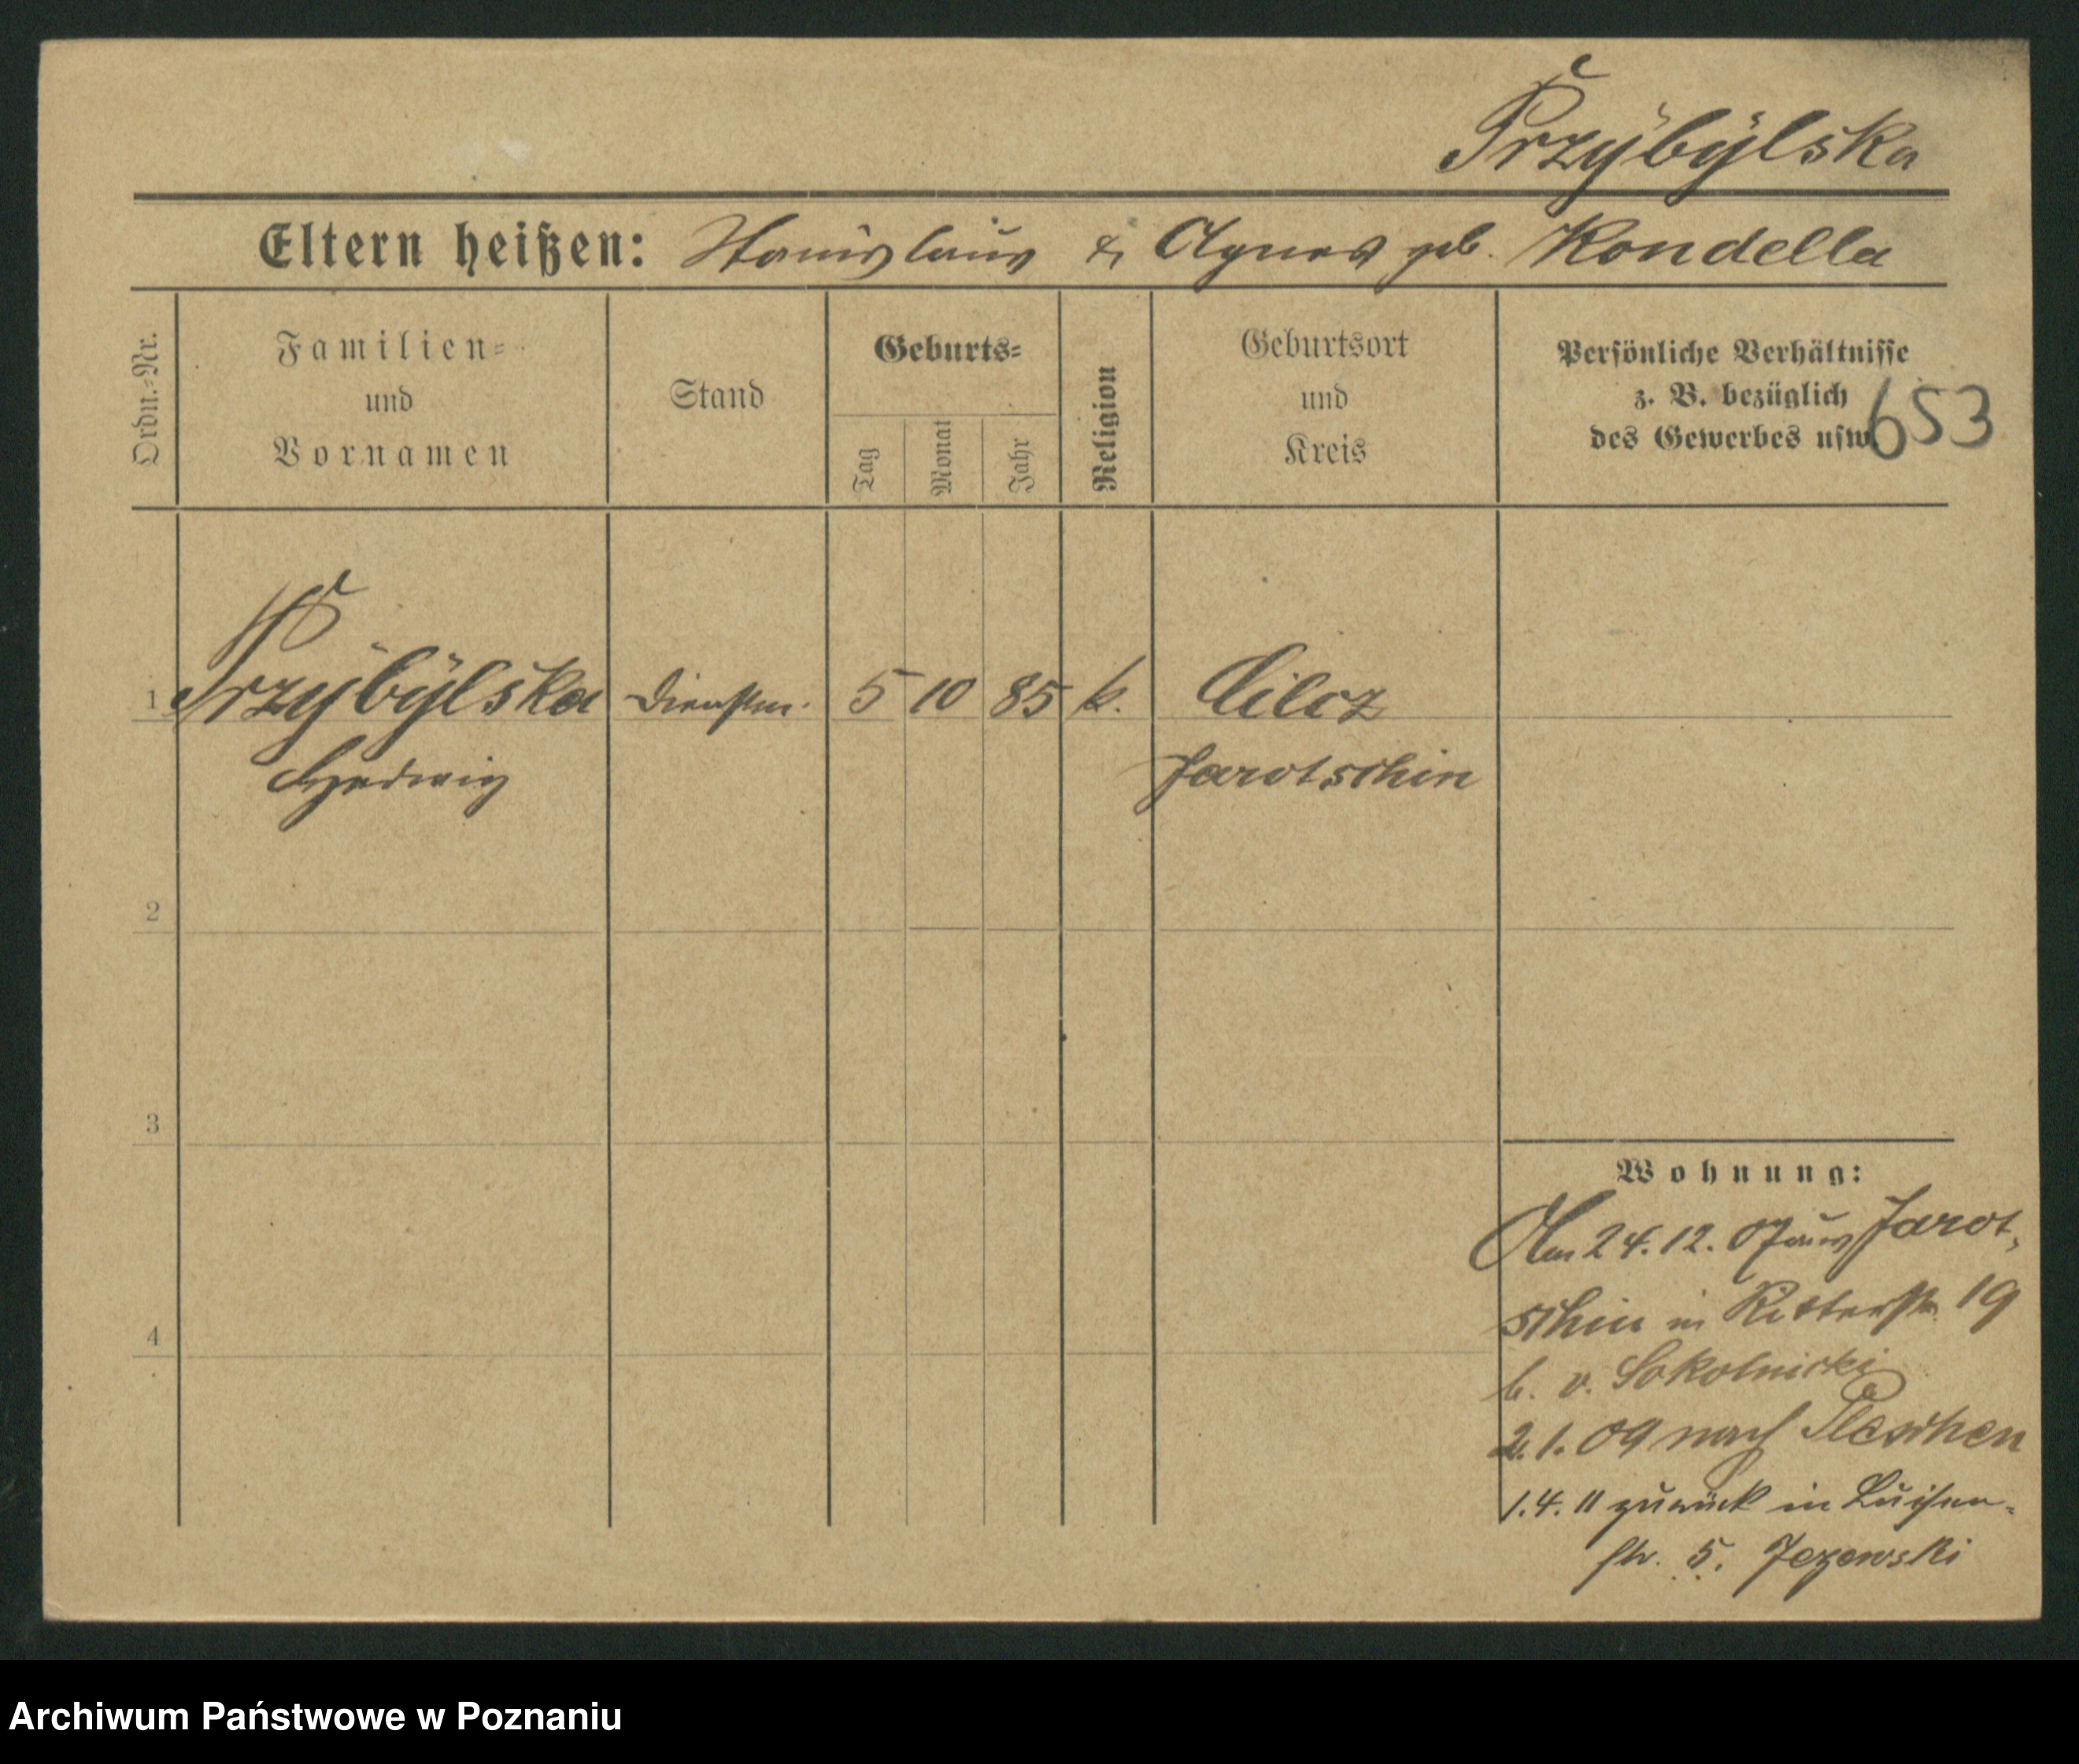 Przybylska
Eltern heißen: Stanislaus & Agnes geb. Kondella
Ordn.-Nr.
Familien-
und
Vornamen
Stand
Geburts-
Tag
Monat
Jahr
Religion
Geburtsort
und
Kreis
Persönliche Verhältnisse
z. B. bezüglich
des Gewerbes usw.
653
1 Przybylska Dienstm. 5 10 85 k. Cilcz
Hedwig Jarotschin
2
3
4
Wohnung:
Am 24.12.07 aus Jarot-
schin in Ritterstr. 19
b. v. Sokolnicki
2.1.09 nach Pleschen
1.4.11 zurück in Luisen-
str. 5. Jezewski
Archiwum Państwowe w Poznaniu